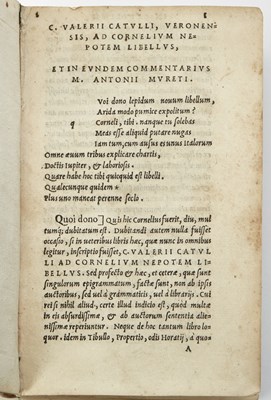 C. VALERII CATVLLI, VERONEN-
SIS, AD CORNELIVM NE-
POTEM LIBELLVS,
ET IN EVNDEM COMMENTARIVS
M. ANTONII MVRETI.
Voi dono lepidum nouum libellum,
Arida modo pumice expolitum?
q Corneli, tibi. nanque tu solebas
Meas esse aliquid putare nugas
Iam tum, cum ausus es unus Italorum
Omne æuum tribus explicare chartis,
Doctis Iupiter, & laboriosis.
Quare habe hoc tibi quicquid est libelli
Qualecunque quidem
Plus uno maneat perenne seclo.
Quoi dono] Quis hic Cornelius fuerit, diu, mul
tumq; dubitatum est. Dubitandi autem nulla fuisset
occasio, si in ueteribus libris hæc, quæ nunc in omnibus
legitur, inscriptio fuisset, C. VALERII CATVL
LI AD CORNELIVM NEPOTEM LI
BELLVS. Sed profecto & hæc, et ceteræ, quæ sunt
singulorum epigrammatum, factæ sunt, non ab ipsis
auctoribus, sed uel à grammaticis, uel à librarijs. Cui
rei se nihil aliud, certe illud indicio est, quòd multæ
in eis absurdissimæ, & ab auctorum sententia alie-
nissimæ reperiuntur. Neque de hoc tantum libro lo
quor. Idem in Tibullo, Propertio, odis Horatij, à quo
A